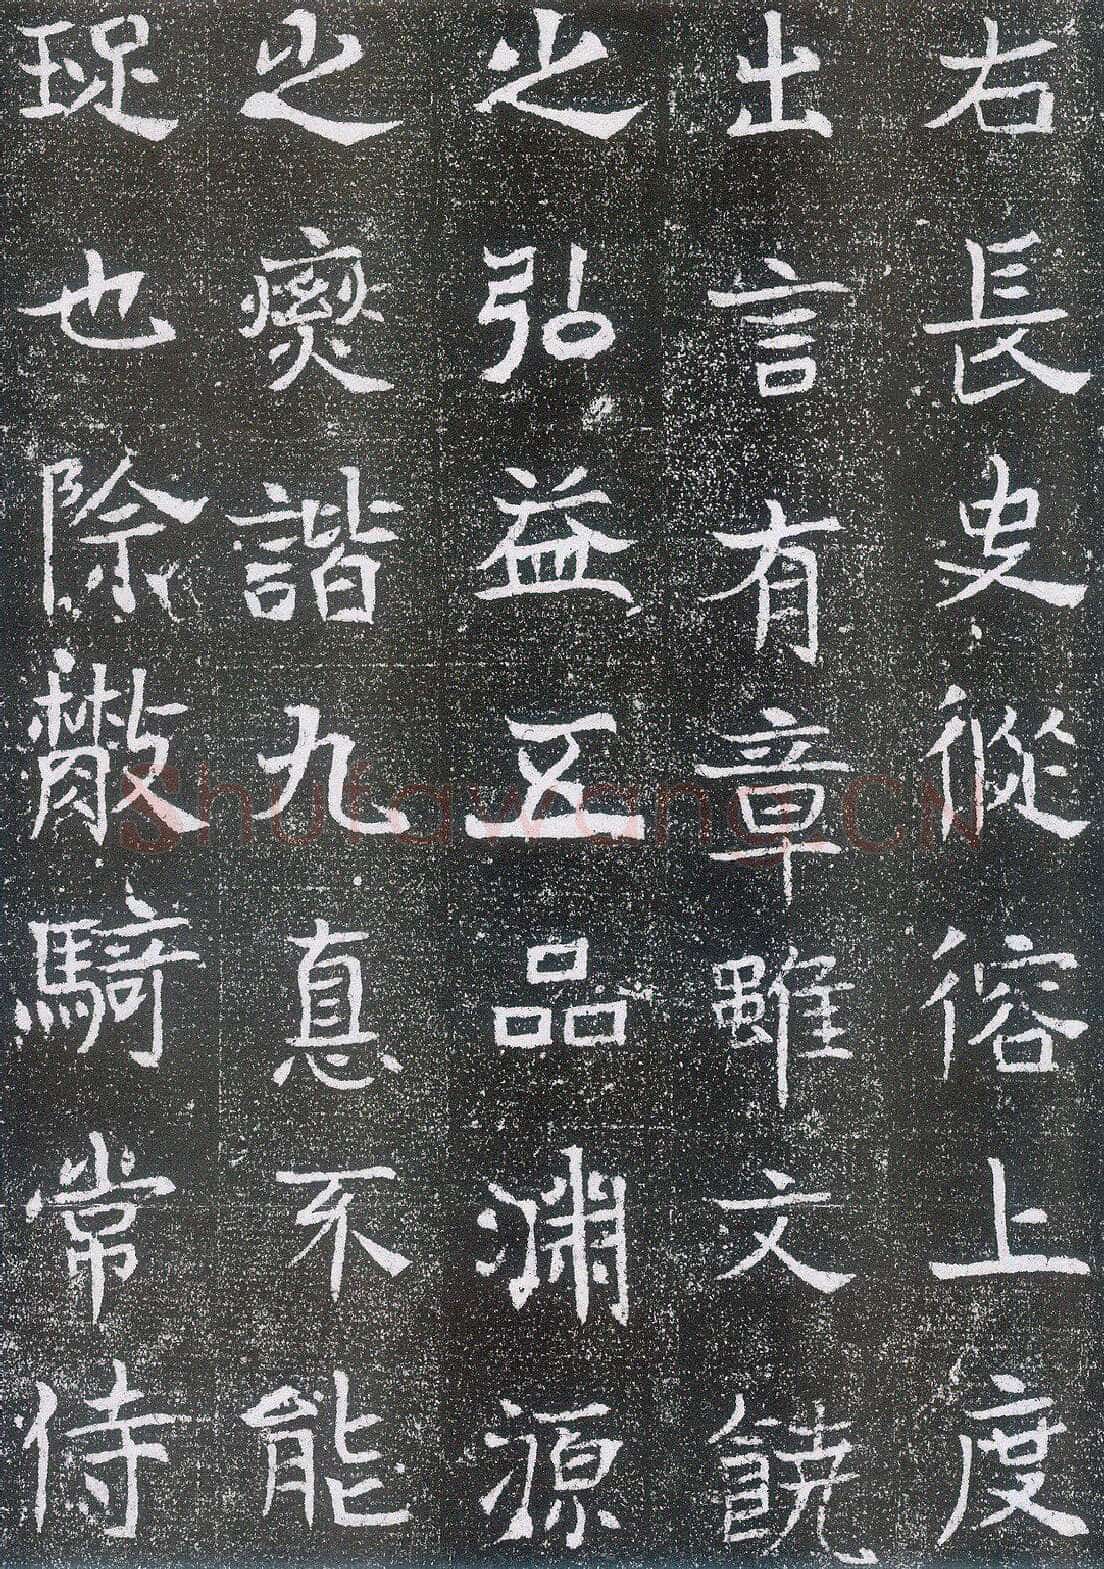 右長史從容上度
出言有章雖文饒
之弘益五品渊源
之爕諧九惪不能
也除散騎常侍
Shufawang.CN